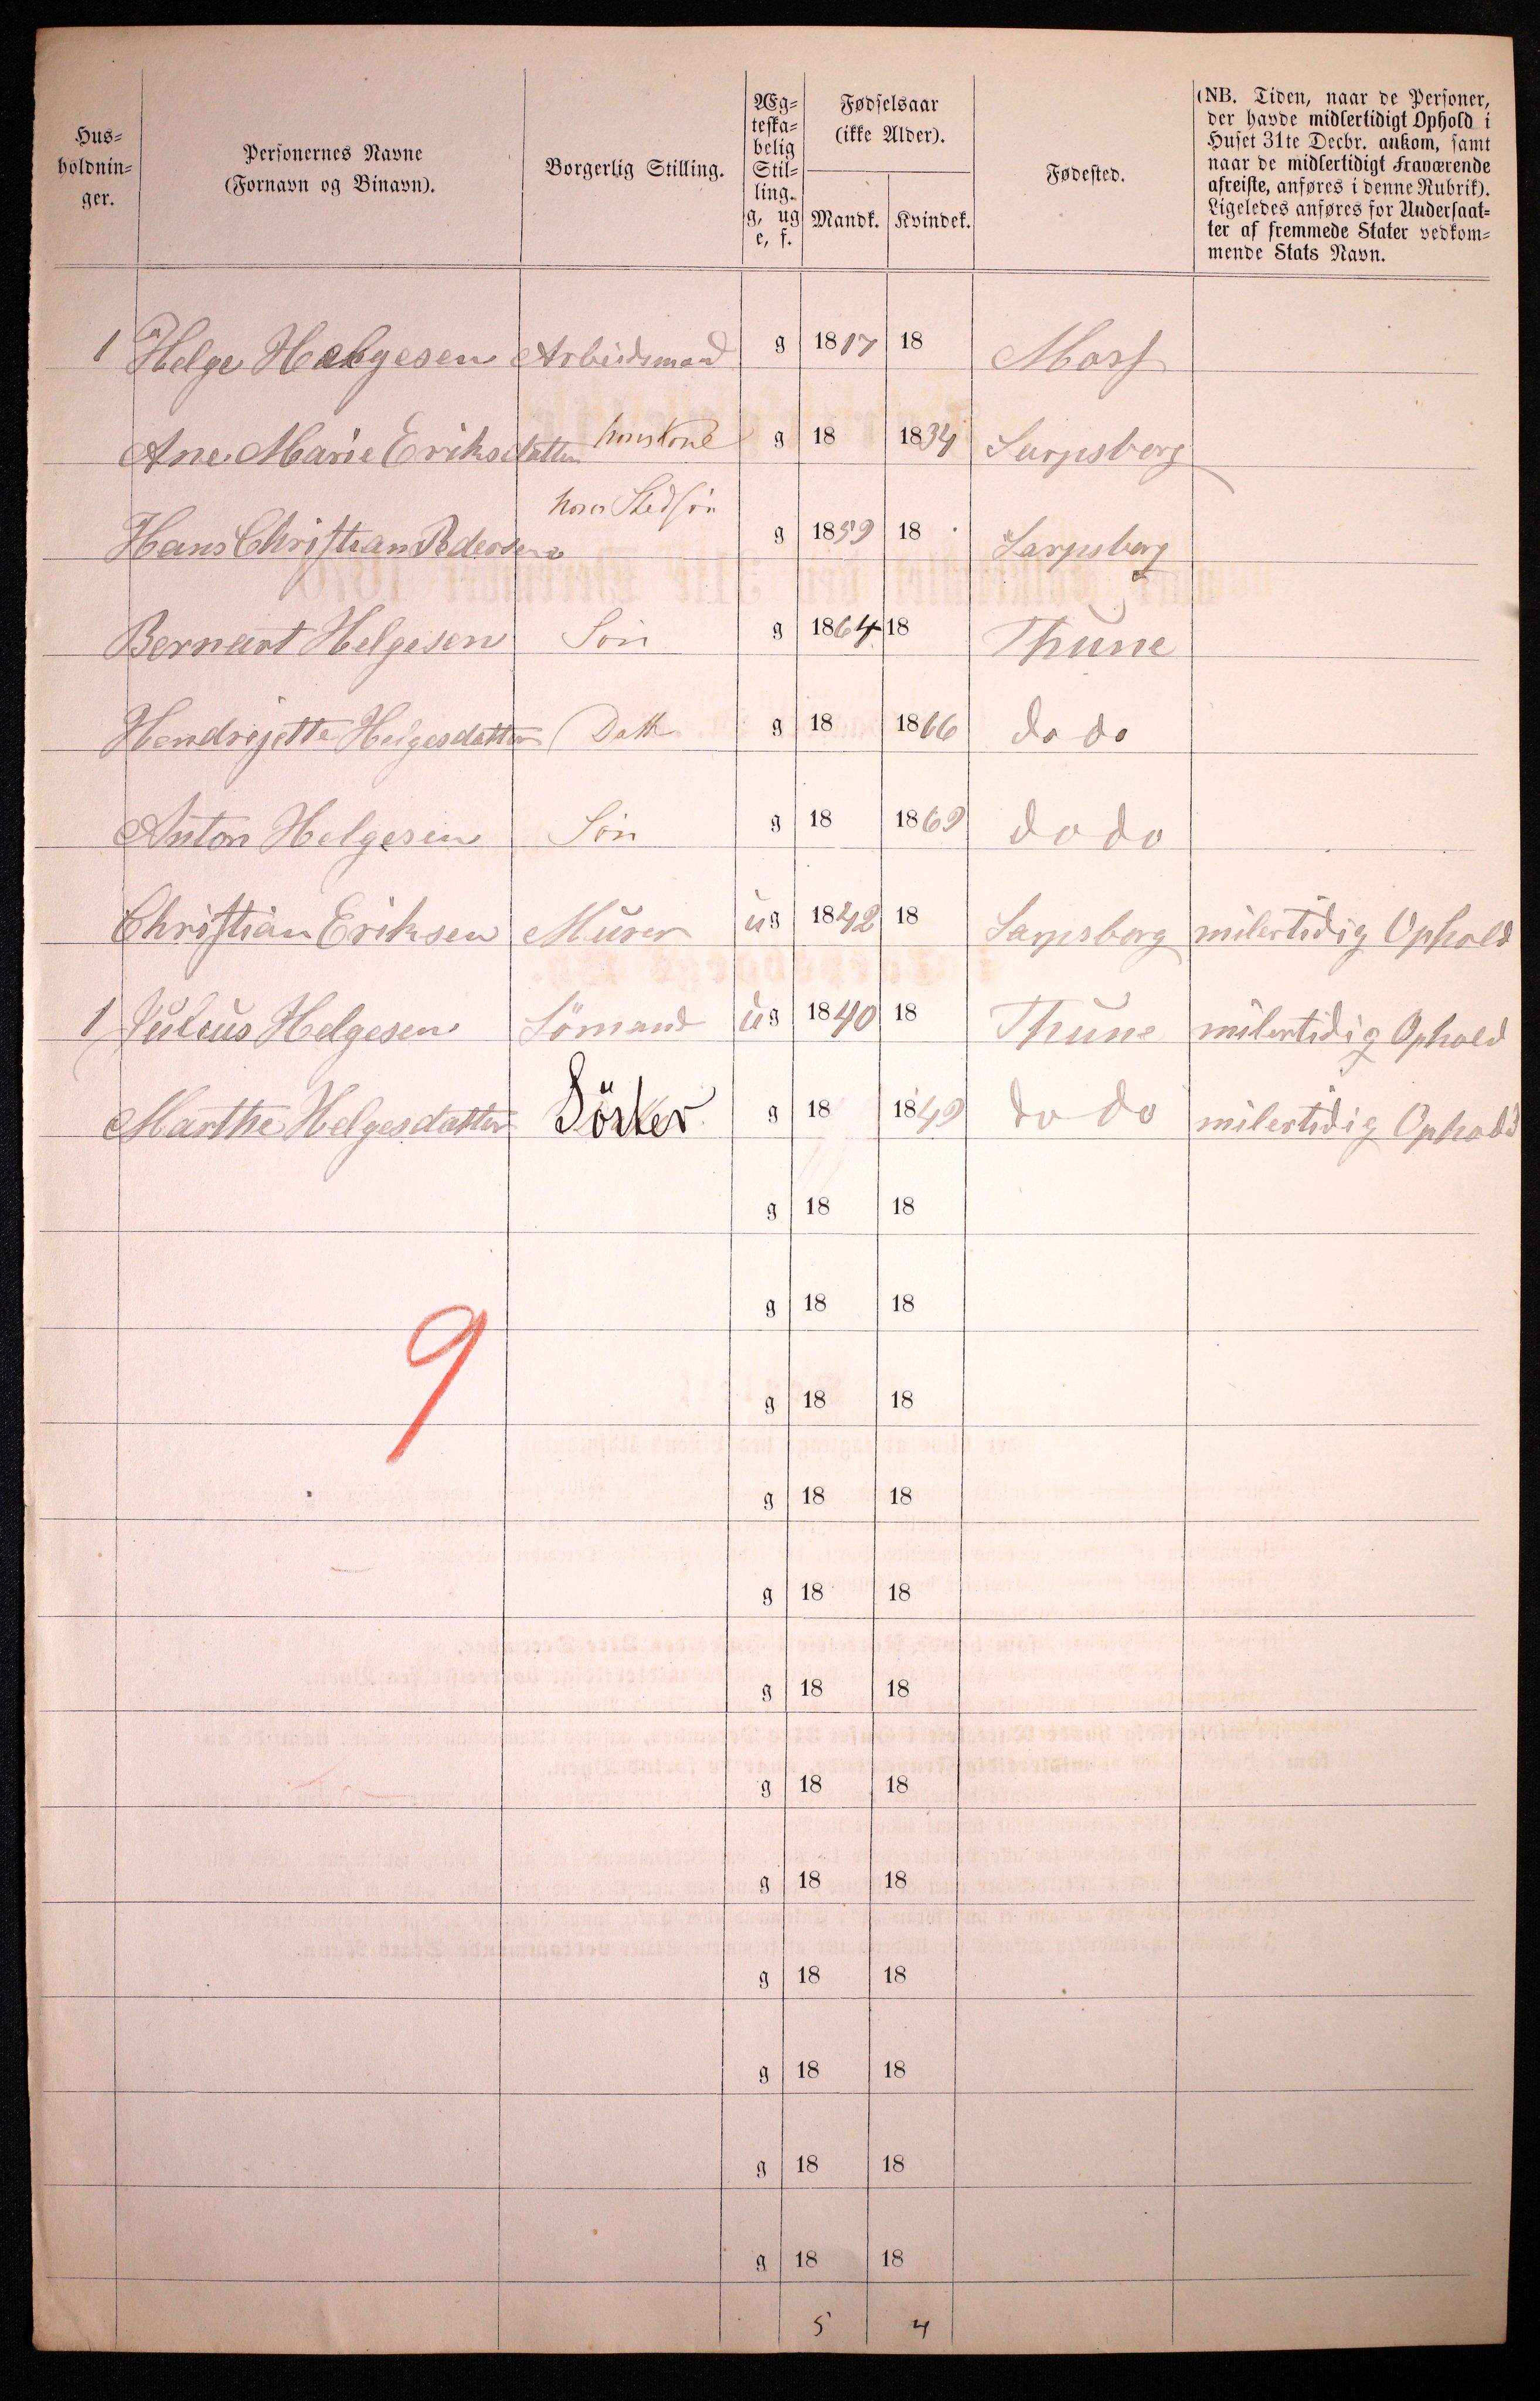 Hus=
holdnin=
ger.
Personernes Navne
(Fornavn og Binavn).
Borgerlig Stilling.
Æg=
teska=
belig
Stil=
ling.
g, ug
e, f.
Fødselsaar
(ikke Alder).
Mandk. Kvindek.
Fødested.
(NB. Tiden, naar de Personer,
der havde midlertidigt Ophold i
Huset 31te Decbr. ankom, samt
naar de midlertidigt Fraværende
afreiste, anføres i denne Rubrik).
Ligeledes anføres for Undersaat=
ter af fremmede Stater vedkom=
mende Stats Navn.
1 Helge Helgesen Arbeidsmand g 1817 18 Moss
Ane Marie Eriksdatter hans Kone g 18 1834 Sarpsborg
Hans Christian Pedersen hans Stedsön g 1859 18 Sarpsborg
Bernart Helgesen Sön g 1864 18 Thune
Hendrijette Helgesdatter Datt g 18 1866 do do
Anton Helgesen Sön g 18 1869 do do
Christian Eriksen Murer ug 1842 18 Sarpsborg milertidig Ophold
1 Julius Helgesen Sömand ug 1840 18 Thune milertidig Ophold
Marthe Helgesdatter Söster g 18 1849 do do milertidig Ophold
g 18 18
g 18 18
9
g 18 18
g 18 18
g 18 18
g 18 18
g 18 18
g 18 18
g 18 18
g 18 18
g 18 18
g 18 18
5 4